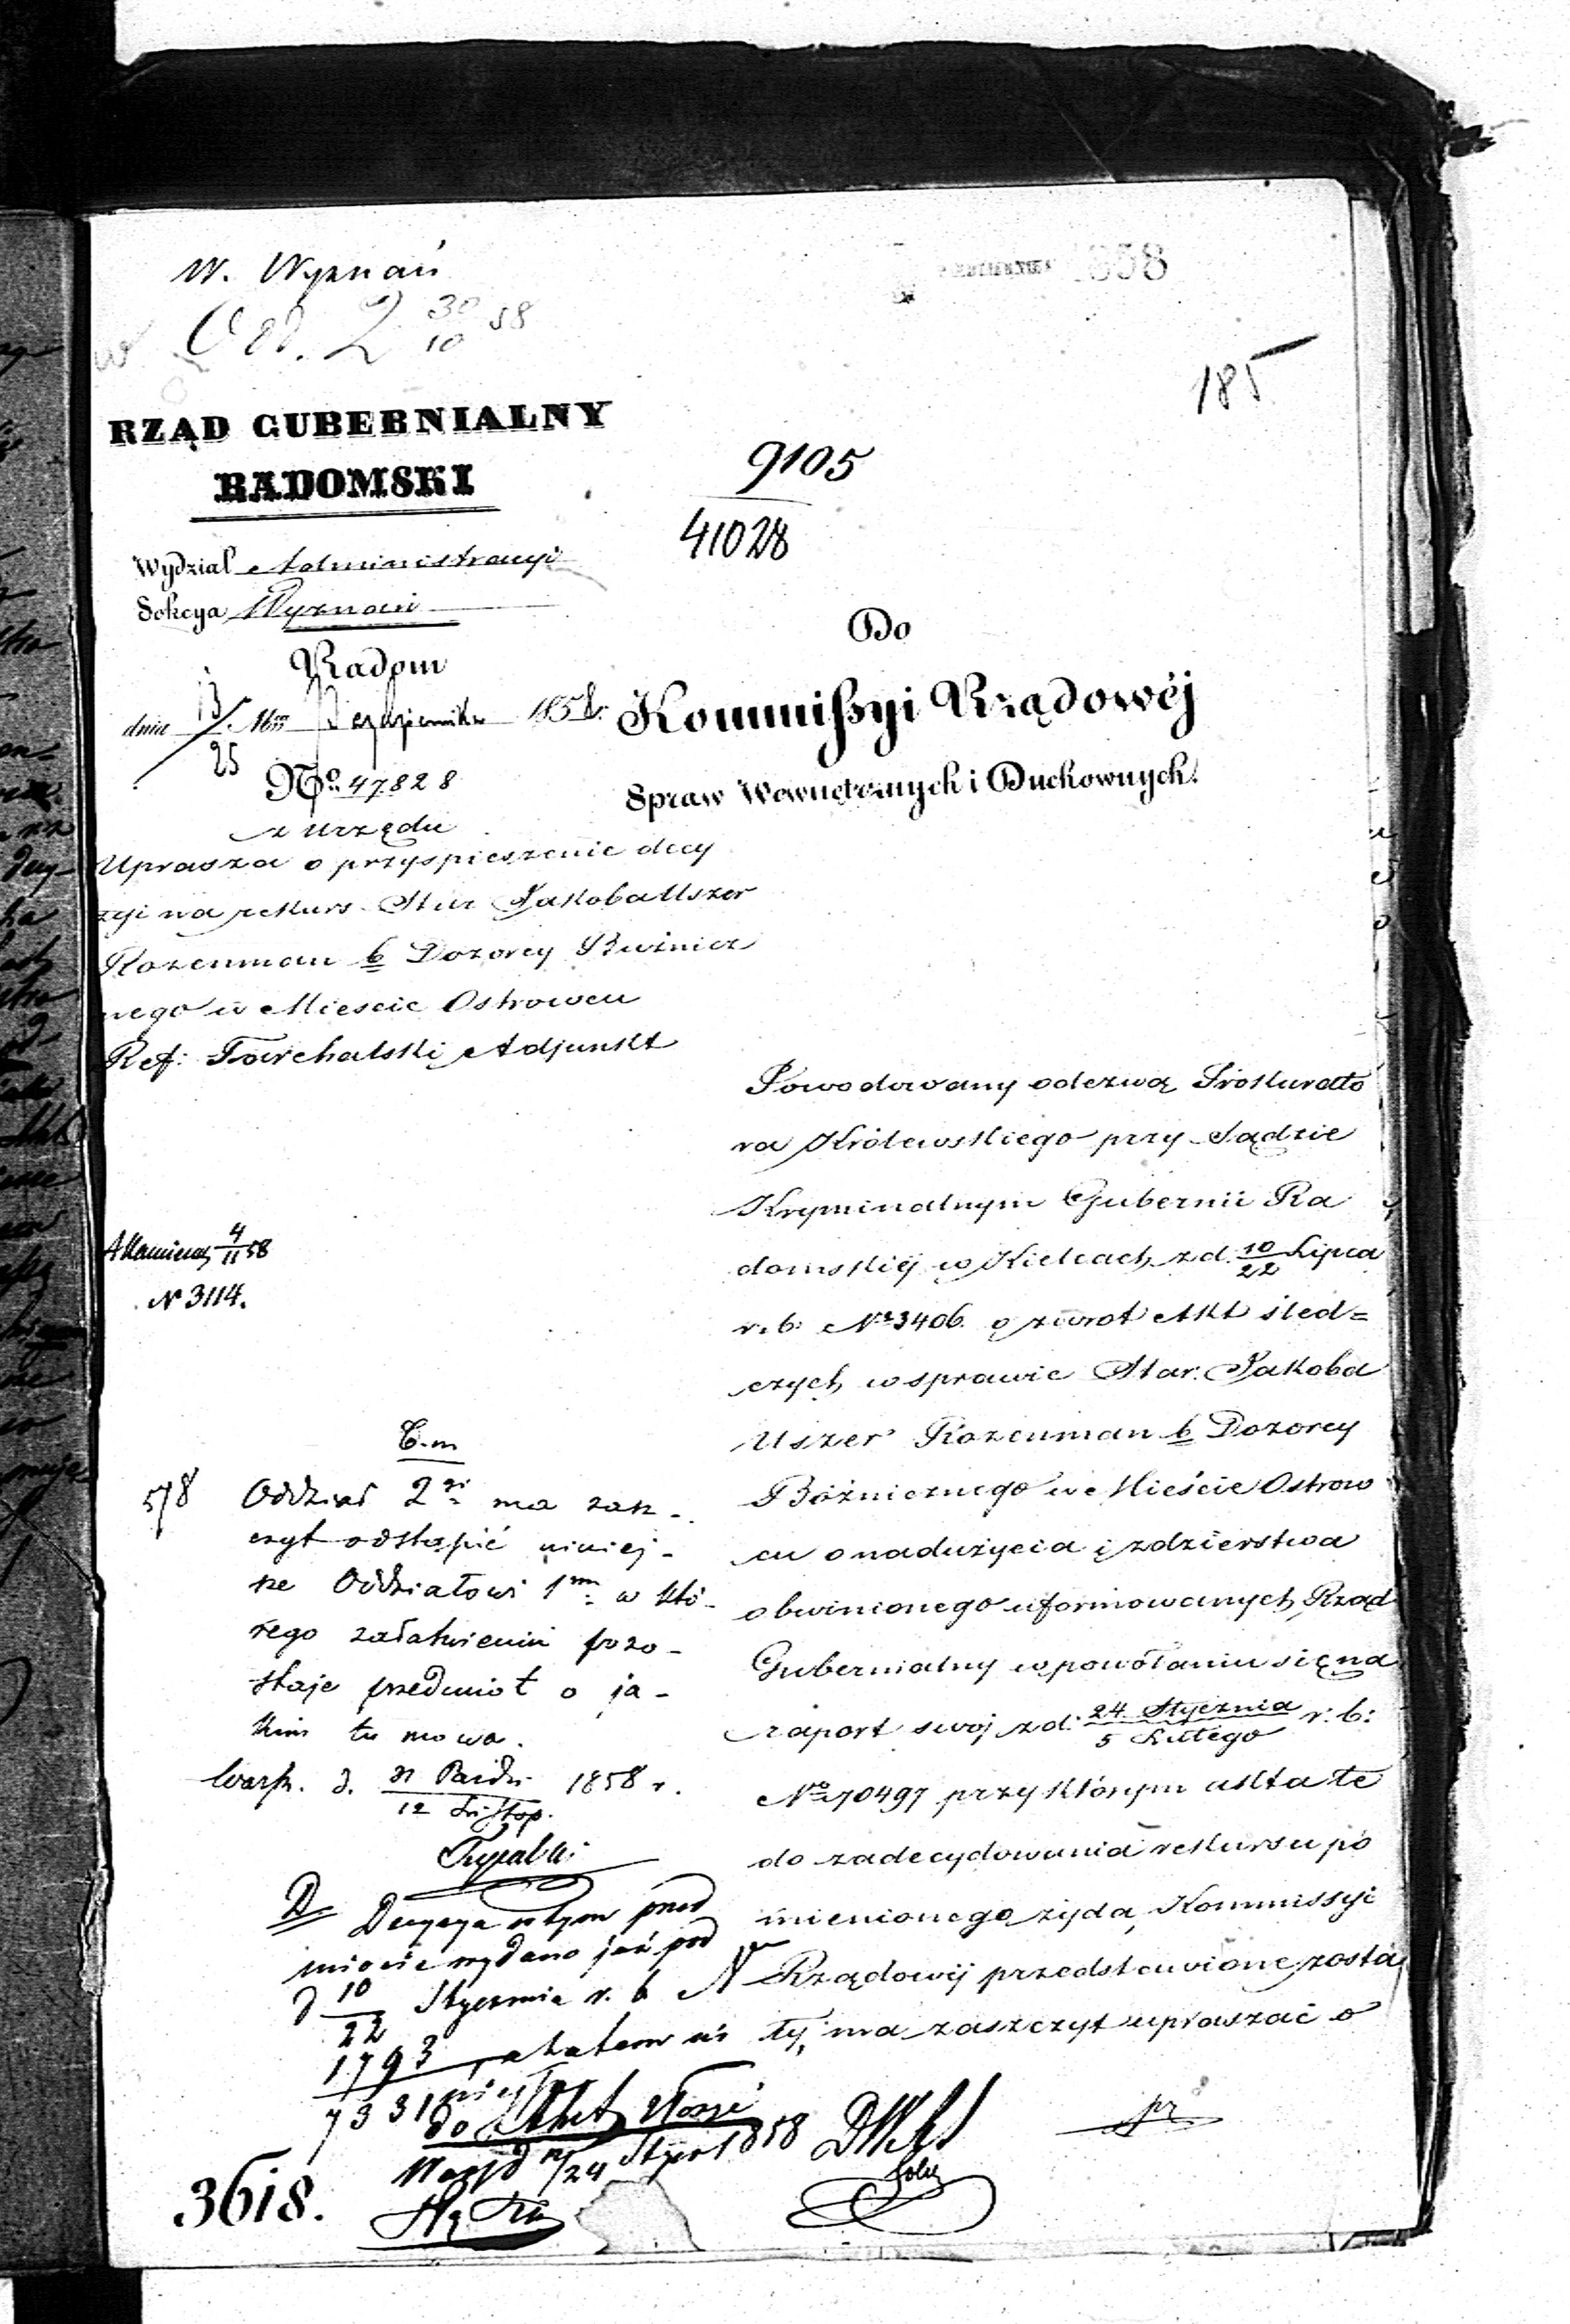 W. Wyznań
30 58
10
1858
185
RZĄD GUBERNIALNY
RADOMSKI
9105
41028
Wydział Administracyi
Sekcya Wyznań
Radom
dnia 13/25 Mca Października 1858 r.
No 47828
z urzędu
Uprasza o przyspieszenie decy
zyi na rekurs Star Jakoba Uszer
Rozenman b Dozorcy Bużnicz
nego w Mieście Ostrowcu
Ref: Adjunkt
Do
Kommissyi Rządowéj
Spraw Wewnętrznych i Duchownych.
Powodowany odezwą Prokurato
ra Królewskiego przy Sądzie
Kryminalnym Gubernii Ra
domskiéj w Kielcach z d. 10/22 Lipca
r. b: No 3406. o zwrot Akt śled=
czych w sprawie Star. Jakoba
Uszer Rozenman b Dozorcy
Bóżnicznego w Mieście Ostrow
cu o nadużycia i zdzierstwa
obwinionego uformowanych, Rząd
Gubernialny w powołaniu się na
raport swój z d: 24 Stycznia / 5 Lutego r: b:
No 70497 przy którym akta te
do zadecydowania rekursu po
mienionego żyda, Kommissyi
Rządowéj przedstawione zosta
ły, ma zaszczyt upraszać o
4/11 58
N 3114.
B. m
578 Oddział 2gi ma zasz-
czyt odstąpić niniej-
sze Oddziałowi 1mu w któ-
rego załatwieniu pozo-
staje przedmiot o ja-
kim tu mowa.
Warsz. d. 31 Paźdz. / 12 Listop. 1858 r.
D. Decyzya w tym przed
miocie wydano już pod
d 10/22 Stycznia r. b N
1793/7331
do Akt
24 Stycz 1858
3618.